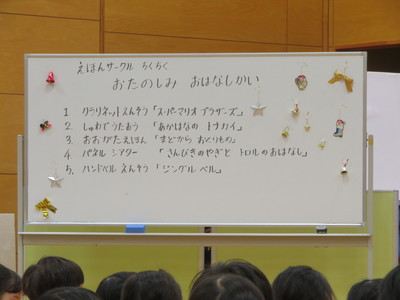 えほんサークル ちくちく
おたのしみ おはなしかい
1. クラリネットえんそう「スーパーマリオブラザーズ」
2. しゅわでうたおう 「あかはなの トナカイ」
3. おおがたえほん 「まどから おくりもの」
4. パネル シアター 「さんびきのやぎと トロルのおはなし」
5. ハンドベル えんそう 「ジングル ベル」